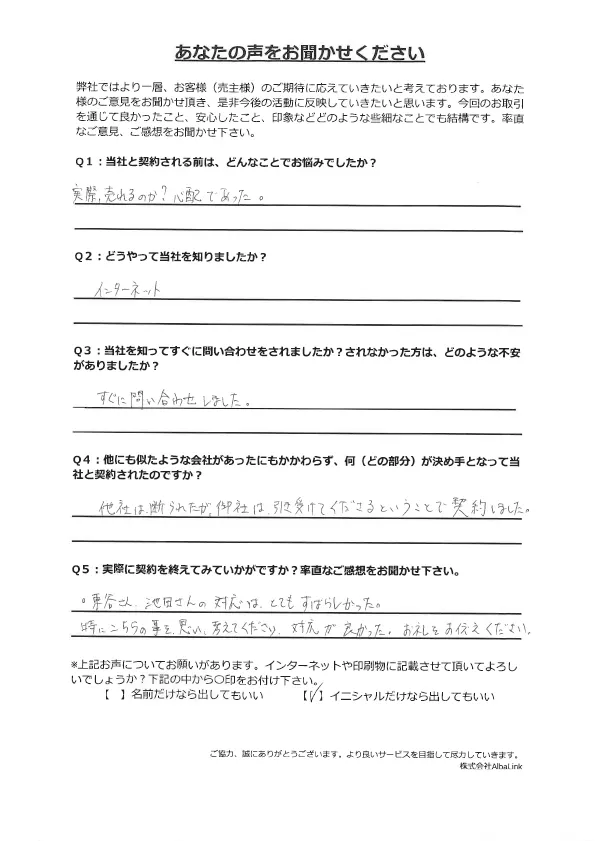 あなたの声をお聞かせください
弊社ではより一層、お客様（売主様）のご期待に応えていきたいと考えております。あなた
様のご意見をお聞かせ頂き、是非今後の活動に反映していきたいと思います。今回のお取引
を通じて良かったこと、安心したこと、印象などどのような些細なことでも結構です。率直
なご意見、ご感想をお聞かせ下さい。
Q１：当社と契約される前は、どんなことでお悩みでしたか？
実際、売れるのか？心配であった。
Q２：どうやって当社を知りましたか？
インターネット
Q３：当社を知ってすぐに問い合わせをされましたか？されなかった方は、どのような不安
がありましたか？
すぐに問い合わせしました。
Q４：他にも似たような会社があったにもかかわらず、何（どの部分）が決め手となって当
社と契約されたのですか？
他社は、断られたが、御社は、引き受けてくださるということで契約しました。
Q５：実際に契約を終えてみていかがですか？率直なご感想をお聞かせ下さい。
。東谷さん、池田さんの対応は、とてもすばらしかった。
特にこちらの事を、思い、考えてくださり、対応が良かった。お礼をお伝えください。
※上記お声についてお願いがあります。インターネットや印刷物に記載させて頂いてよろし
いでしょうか？下記の中から〇印をお付け下さい。
【 】名前だけなら出してもいい 【✓】イニシャルだけなら出してもいい
ご協力、誠にありがとうございます。より良いサービスを目指して尽力していきます。
株式会社AlbaLink